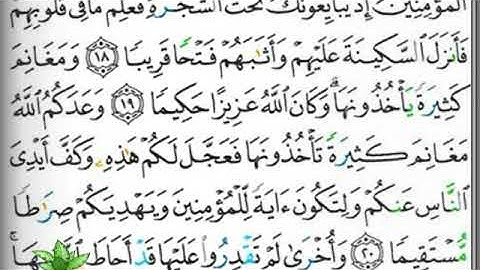 ٱلْمُؤْمِنِينَ إِذْ يُبَايِعُونَكَ تَحْتَ ٱلشَّجَرَةِ فَعَلِمَ مَا فِى قُلُوبِهِمْ
فَأَنزَلَ ٱلسَّكِينَةَ عَلَيْهِمْ وَأَثَٰبَهُمْ فَتْحًا قَرِيبًا ١٨ وَمَغَانِمَ
كَثِيرَةً يَأْخُذُونَهَا ۗ وَكَانَ ٱللَّهُ عَزِيزًا حَكِيمًا ١٩ وَعَدَكُمُ ٱللَّهُ
مَغَانِمَ كَثِيرَةً تَأْخُذُونَهَا فَعَجَّلَ لَكُمْ هَٰذِهِۦ وَكَفَّ أَيْدِىَ
ٱلنَّاسِ عَنكُمْ وَلِتَكُونَ ءَايَةً لِّلْمُؤْمِنِينَ وَيَهْدِيَكُمْ صِرَٰطًا
مُّسْتَقِيمًا ٢٠ وَأُخْرَىٰ لَمْ تَقْدِرُوا۟ عَلَيْهَا قَدْ أَحَاطَ ٱللَّهُ بِهَا ۚ